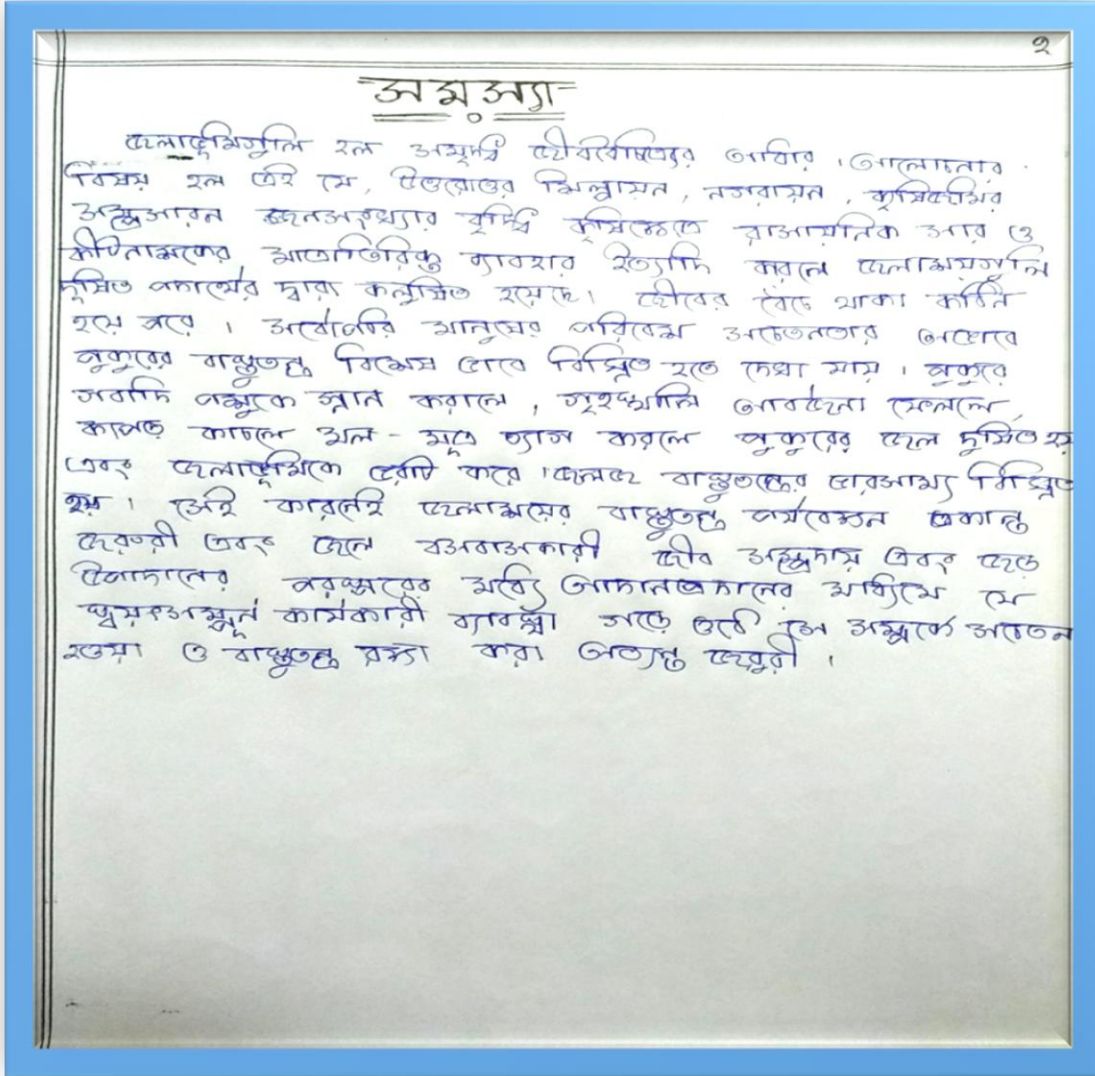 ২
সমস্যা
জলাভূমিগুলি হল সমৃদ্ধ জীববৈচিত্র্যের আধার । আলোচনার
বিষয় হল এই যে, উত্তরোত্তর শিল্পায়ন, নগরায়ন, কৃষিজমির
সম্প্রসারন জনসংখ্যার বৃদ্ধি কৃষিক্ষেতে রাসায়নিক সার ও
কীটনাশকের মাত্রাতিরিক্ত ব্যাবহার ইত্যাদি কারনে জলাশয়গুলি
দূষিত পদার্থের দ্বারা কলুষিত হয়েছে। জীবের বেঁচে থাকা কঠিন
হয়ে পরে । সর্বোপরি মানুষের পরিবেশ সচেতনতার অভাবে
পুকুরের বাস্তুতন্ত্র বিশেষ ভাবে বিঘ্নিত হতে দেখা যায় । পুকুরে
গবাদি পশুকে স্নান করালে, গৃহস্থালি আবর্জনা ফেললে,
কাপড় কাচলে মল - মূত্র ত্যাগ করলে পুকুরের জল দূষিত হয়
এবং জলাভূমিকে ভরাট করে । জলজ বাস্তুতন্ত্রের ভারসাম্য বিঘ্নিত
হয় । সেই কারনেই জলাশয়ের বাস্তুতন্ত্র পর্যবেক্ষন একান্ত
জরুরী এবং জলে বসবাসকারী জীব সম্প্রদায় এবং জড়
উপাদানের পরস্পরের মধ্যে আদানপ্রদানের মাধ্যমে যে
স্বয়ংসম্পূর্ন কার্যকারী ব্যাবস্থা গড়ে ওঠে সে সম্পর্কে সচেতন
হওয়া ও বাস্তুতন্ত্র রক্ষা করা অত্যন্ত জরুরী ।